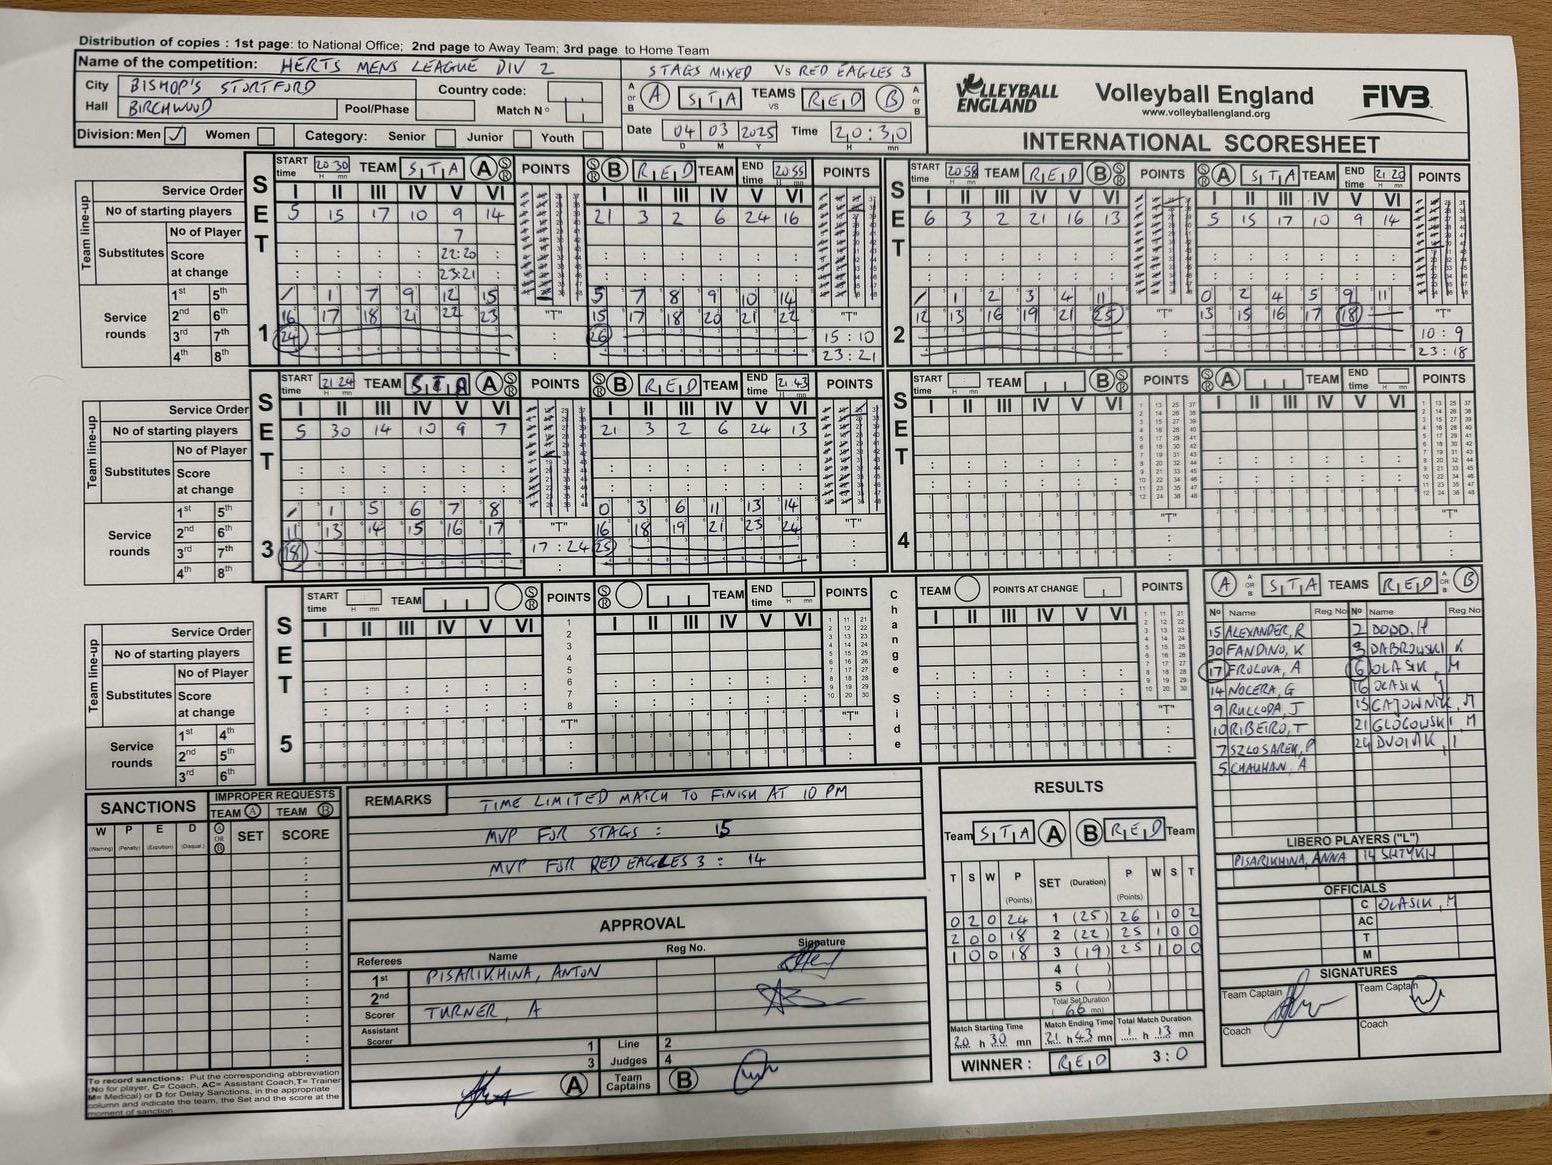 Distribution of copies : 1st page: to National Office; 2nd page to Away Team; 3rd page to Home Team
Name of the competition: HERTS MENS LEAGUE DIV 2
City BISHOP'S STORTFORD Country code:
Hall BIRCHWOOD Pool/Phase Match Nº
Division: Men ✓ Women Category: Senior Junior Youth
STAGS MIXED Vs RED EAGLES 3
A or B A STA TEAMS vs RED B A or B
Date 04 03 2025 Time 20:30
D M Y H mn
VOLLEYBALL ENGLAND Volleyball England FIVB
www.volleyballengland.org
INTERNATIONAL SCORESHEET
SET 1
START time 20 30 TEAM STA A S R POINTS S R B RED TEAM END time 20 55 POINTS
Service Order I II III IV V VI I II III IV V VI
No of starting players 5 15 17 10 9 14 21 3 2 6 24 16
Team line-up
Substitutes No of Player 7
Score at change 22:20
23:21
Service rounds
1st 5th / 1 7 9 12 15 5 7 8 9 10 14
2nd 6th 16 17 18 21 22 23 "T" 15 17 18 20 21 22 "T"
3rd 7th 24 26 15:10
4th 8th 23:21
SET 2
START time 20 58 TEAM RED B S R POINTS S R A STA TEAM END time 21 20 POINTS
I II III IV V VI I II III IV V VI
6 3 2 21 16 13 5 15 17 10 9 14
/ 1 2 3 4 11 0 2 4 5 9 11
12 13 16 19 21 25 "T" 13 15 16 17 18 "T"
10:9
23:18
SET 3
START time 21 24 TEAM STA A S R POINTS S R B RED TEAM END time 21 43 POINTS
Service Order I II III IV V VI I II III IV V VI
No of starting players 5 30 14 10 9 7 21 3 2 6 24 13
Team line-up
Substitutes No of Player
Score at change
Service rounds
1st 5th / 1 5 6 7 8 0 3 6 11 13 14
2nd 6th 11 13 14 15 16 17 "T" 16 18 19 21 23 24 "T"
3rd 7th 18 17:24 25
4th 8th
SET 4
START time TEAM B S R POINTS S R A TEAM END time POINTS
I II III IV V VI I II III IV V VI
"T" "T"
SET 5
START time TEAM S R POINTS S R TEAM END time POINTS
Change Side
TEAM POINTS AT CHANGE POINTS
Service Order I II III IV V VI I II III IV V VI I II III IV V VI
No of starting players
Team line-up
Substitutes No of Player
Score at change
Service rounds
1st 4th "T" "T" "T"
2nd 5th
3rd 6th
A A OR B STA TEAMS RED A OR B B
No Name Reg No No Name Reg No
15 ALEXANDER, R 2 DODD, H
30 FANDINO, K 3 DABROWSKI K
17 FROLOVA, A 6 OLASIK, M
14 NOCERA, G 16 OLASIK
9 RULLODA, J
10 RIBEIRO, T 21 GLOGOWSKI, M
7 SZLOSAREK, P 24
5 CHAUHAN, A
LIBERO PLAYERS ("L")
PISARIKHINA, ANNA 14 SHTYKH
OFFICIALS
C OLASIK, M
AC
T
M
SIGNATURES
Team Captain Team Captain
Coach Coach
SANCTIONS IMPROPER REQUESTS
TEAM A TEAM B
W P E D A OR B SET SCORE
(Warning) (Penalty) (Expulsion) (Disqual.)
To record sanctions: Put the corresponding abbreviation
(No for player, C= Coach, AC= Assistant Coach,T= Trainer
M= Medical) or D for Delay Sanctions, in the appropriate
column and indicate the team, the Set and the score at the
moment of sanction
REMARKS TIME LIMITED MATCH TO FINISH AT 10 PM
MVP FOR STAGS : 15
MVP FOR RED EAGLES 3 : 14
APPROVAL
Referees Name Reg No. Signature
1st PISARIKHINA, ANTON
2nd
Scorer TURNER, A
Assistant Scorer
1 Line 2
3 Judges 4
A Team Captains B
RESULTS
Team STA A B RED Team
T S W P (Points) SET (Duration) P (Points) W S T
0 2 0 24 1 (25) 26 1 0 2
2 0 0 18 2 (22) 25 1 0 0
1 0 0 18 3 (19) 25 1 0 0
4 ( )
5 ( )
Total Set Duration
( 66 mn)
Match Starting Time Match Ending Time Total Match Duration
20 h 30 mn 21 h 43 mn 1 h 13 mn
WINNER : RED 3:0